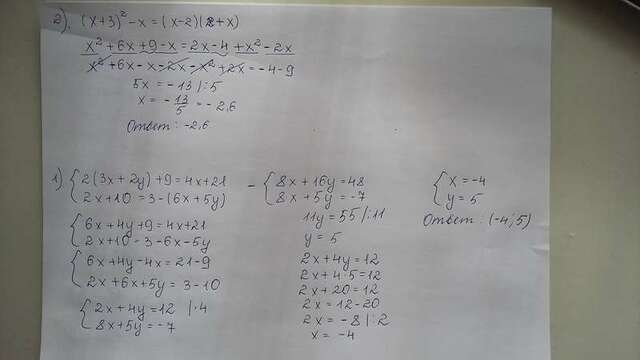 2). (x+3)² - x = (x-2)(2+x)
x² + 6x + 9 - x = 2x - 4 + x² - 2x
x² + 6x - x - 2x - x² + 2x = -4 - 9
5x = -13 |:5
x = -13/5 = -2,6
Ответ: -2,6
1) { 2(3x+2y)+9=4x+21
2x+10=3-(6x+5y)
{ 6x+4y+9=4x+21
2x+10=3-6x-5y
{ 6x+4y-4x=21-9
2x+6x+5y=3-10
{ 2x+4y=12 |·4
8x+5y=-7
- { 8x+16y=48
8x+5y=-7
11y=55 |:11
y=5
2x+4y=12
2x+4·5=12
2x+20=12
2x=12-20
2x=-8 |:2
x=-4
{ x=-4
y=5
Ответ: (-4;5)